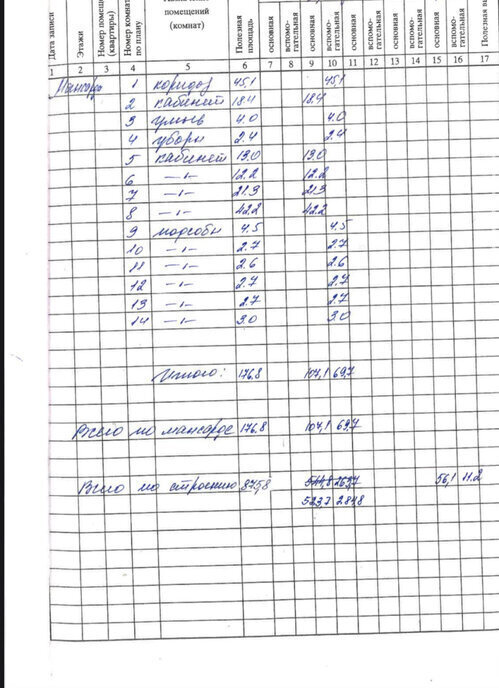 Дата записи
Этажи
Номер помещ
(квартиры)
Номер комнат
по плану
помещений
(комнат)
Полезная
площадь
основная
вспомо-
гательная
основная
вспомо-
гательная
основная
вспомо-
гательная
основная
вспомо-
гательная
основная
вспомо-
гательная
Полезная в
1 2 3 4 5 6 7 8 9 10 11 12 13 14 15 16 17
Мансарда 1 коридор 45,1 45,1
2 кабинет 18.4 18.4
3 умыв 4.0 4.0
4 уборн 2.4 2.4
5 кабинет 13.0 13.0
6 —"— 12.2 12.2
7 —"— 21.3 21.3
8 —"— 42.2 42.2
9 подсобн 4.5 4.5
10 —"— 2.7 2.7
11 —"— 2.6 2.6
12 —"— 2.7 2.7
13 —"— 2.7 2.7
14 —"— 3.0 3.0
Итого: 176.8 107,1 69,7
Всего по мансарде 176,8 107,1 69,7
Всего по строению 875,8 56,1 11.2
523,7 284,8